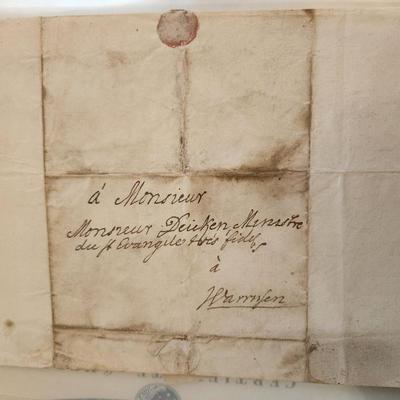 à Monsieur
Monsieur Deicken Ministre
du st Evangile très fidel
à
Warmsen